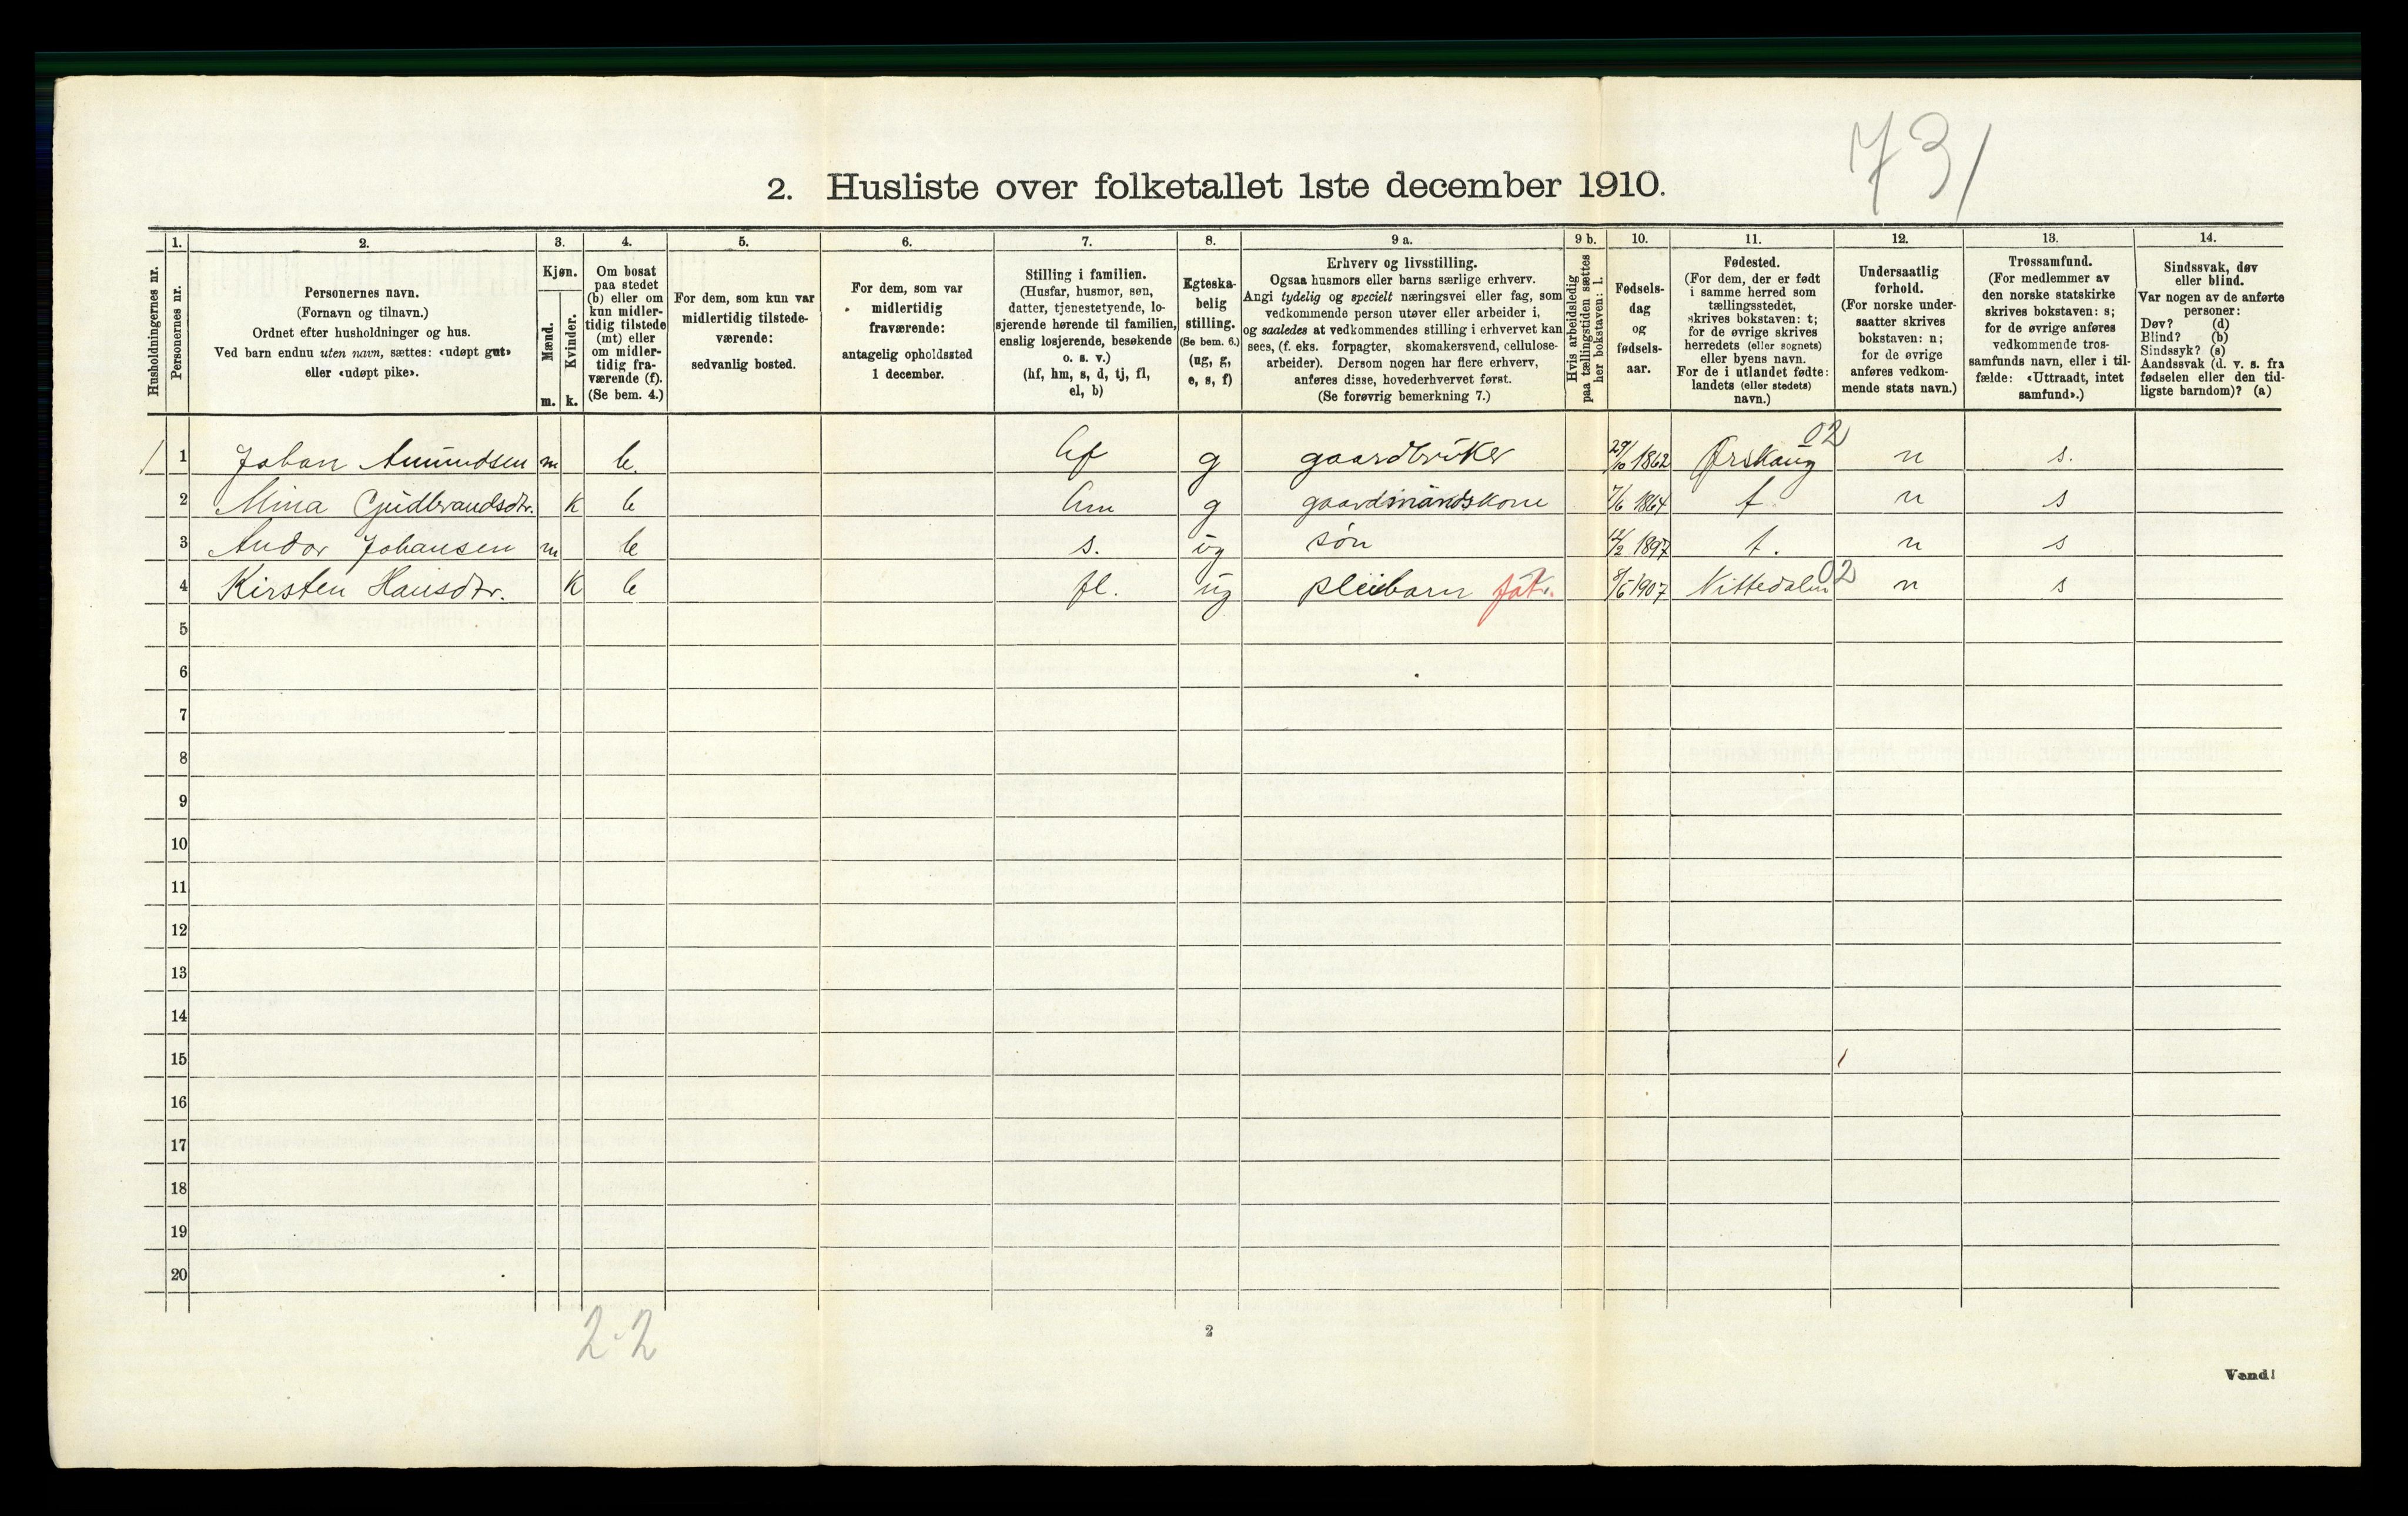 731
2. Husliste over folketallet 1ste december 1910.
Husholdningernes nr.
1.
Personernes nr.
2.
Personernes navn.
(Fornavn og tilnavn.)
Ordnet efter husholdninger og hus.
Ved barn endnu uten navn, sættes: «udøpt gut»
eller «udøpt pike».
3.
Kjøn.
Mænd.
Kvinder.
m. k.
4.
Om bosat
paa stedet
(b) eller om
kun midler-
tidig tilstede
(mt) eller
om midler-
tidig fra-
værende (f).
(Se bem. 4.)
5.
For dem, som kun var
midlertidig tilstede-
værende:
sedvanlig bosted.
6.
For dem, som var
midlertidig
fraværende:
antagelig opholdssted
1 december.
7.
Stilling i familien.
(Husfar, husmor, søn,
datter, tjenestetyende, lo-
sjerende hørende til familien,
enslig losjerende, besøkende
o. s. v.)
(hf, hm, s, d, tj, fl,
el, b)
8.
Egteska-
belig
stilling.
(Se bem. 6.)
(ug, g,
e, s, f)
9 a.
Erhverv og livsstilling.
Ogsaa husmors eller barns særlige erhverv.
Angi tydelig og specielt næringsvei eller fag, som
vedkommende person utøver eller arbeider i,
og saaledes at vedkommendes stilling i erhvervet kan
sees, (f. eks. forpagter, skomakersvend, cellulose-
arbeider). Dersom nogen har flere erhverv,
anføres disse, hovederhvervet først.
(Se forøvrig bemerkning 7.)
9 b.
Hvis arbeidsledig
paa tællingstiden sættes
her bokstaven: l.
10.
Fødsels-
dag
og
fødsels-
aar.
11.
Fødested.
(For dem, der er født
i samme herred som
tællingsstedet,
skrives bokstaven: t;
for de øvrige skrives
herredets (eller sognets)
eller byens navn.
For de i utlandet fødte:
landets (eller stedets)
navn.)
12.
Undersaatlig
forhold.
(For norske under-
saatter skrives
bokstaven: n;
for de øvrige
anføres vedkom-
mende stats navn.)
13.
Trossamfund.
(For medlemmer av
den norske statskirke
skrives bokstaven: s;
for de øvrige anføres
vedkommende tros-
samfunds navn, eller i til-
fælde: «Uttraadt, intet
samfund».)
14.
Sindssvak, døv
eller blind.
Var nogen av de anførte
personer:
Døv? (d)
Blind? (b)
Sindssyk? (s)
Aandssvak (d. v. s. fra
fødselen eller den tid-
ligste barndom)? (a)
1 1 Johan Amundsen m b. hf g gaardbruker 29/10 1862 Ørskaug 02 n s.
2 Mina Gudbrandsdtr. k b hm g gaardmandskone 7/6 1864 t n s
3 Andor Johansen m b s. ug søn 12/2 1897 t. n s
4 Kirsten Hansdtr. k b fl. ug pleiebarn 8/5 1907 Nittedalen 02 n s
5
6
7
8
9
10
11
12
13
14
15
16
17
18
19
20
2 2
2
Vend!